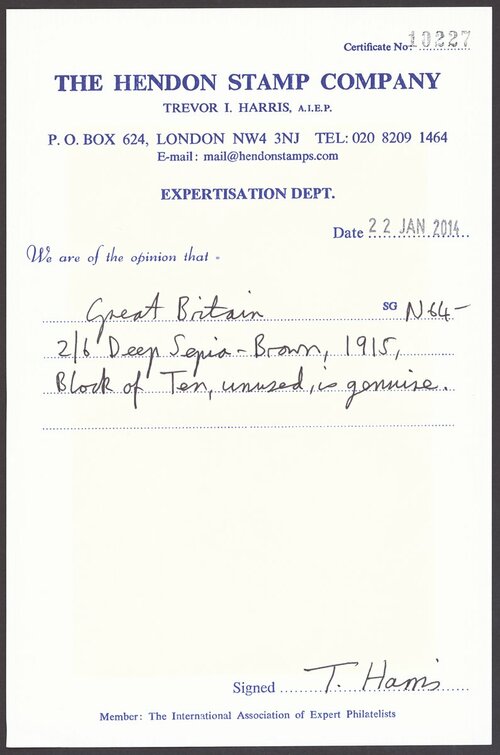 Certificate No: 10227
THE HENDON STAMP COMPANY
TREVOR I. HARRIS, A.I.E.P.
P. O. BOX 624, LONDON NW4 3NJ TEL: 020 8209 1464
E-mail: mail@hendonstamps.com
EXPERTISATION DEPT.
Date 22 JAN 2014
We are of the opinion that -
Great Britain SG N64-
2/6 Deep Sepia-Brown, 1915,
Block of Ten, unused, is genuine.
Signed T. Harris
Member: The International Association of Expert Philatelists